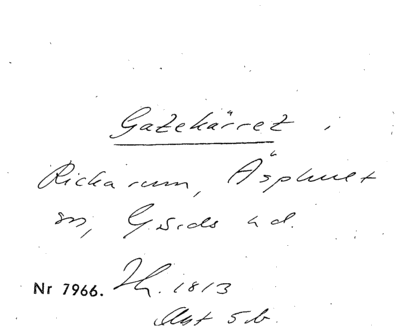 Gatekärret
Rickarum, Äsphult
sn, Gärds hd.
Nr 7966. Th. 1813
Akt 5b.